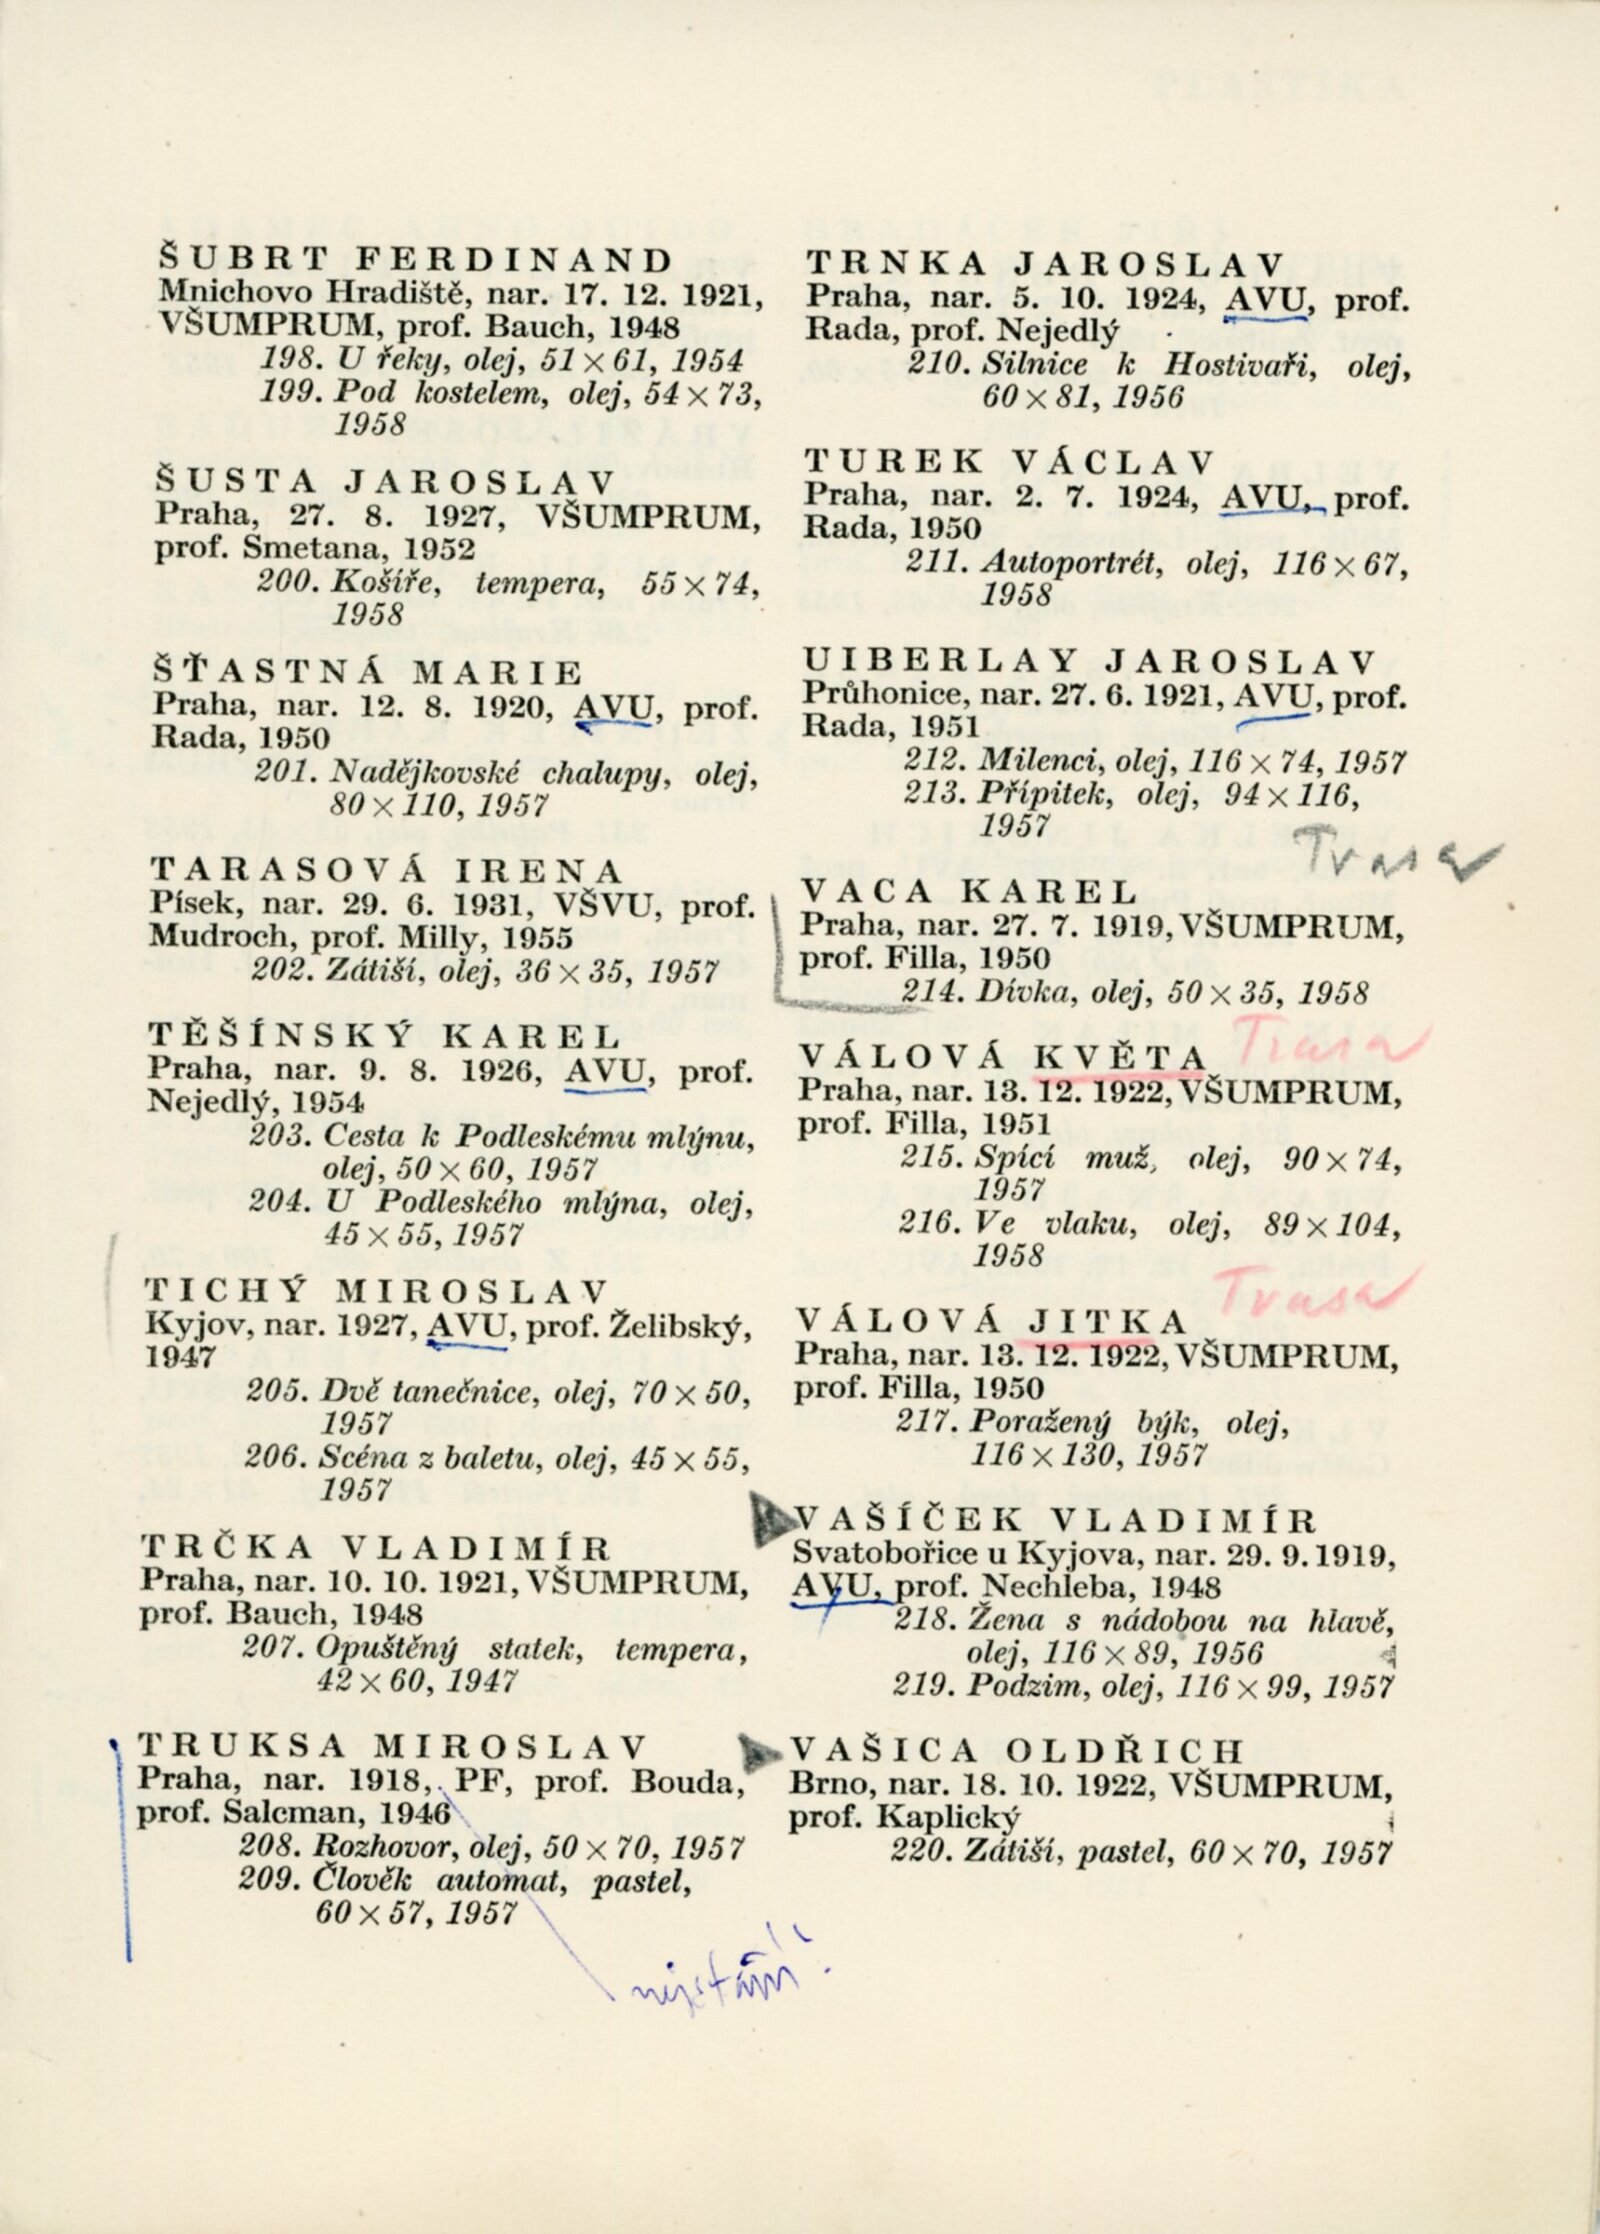 ŠUBRT FERDINAND
Mnichovo Hradiště, nar. 17. 12. 1921,
VŠUMPRUM, prof. Bauch, 1948
198. U řeky, olej, 51 × 61, 1954
199. Pod kostelem, olej, 54 × 73,
1958
ŠUSTA JAROSLAV
Praha, 27. 8. 1927, VŠUMPRUM,
prof. Smetana, 1952
200. Košíře, tempera, 55 × 74,
1958
ŠŤASTNÁ MARIE
Praha, nar. 12. 8. 1920, AVU, prof.
Rada, 1950
201. Nadějkovské chalupy, olej,
80 × 110, 1957
TARASOVÁ IRENA
Písek, nar. 29. 6. 1931, VŠVU, prof.
Mudroch, prof. Milly, 1955
202. Zátiší, olej, 36 × 35, 1957
TĚŠÍNSKÝ KAREL
Praha, nar. 9. 8. 1926, AVU, prof.
Nejedlý, 1954
203. Cesta k Podleskému mlýnu,
olej, 50 × 60, 1957
204. U Podleského mlýna, olej,
45 × 55, 1957
TICHÝ MIROSLAV
Kyjov, nar. 1927, AVU, prof. Želibský,
1947
205. Dvě tanečnice, olej, 70 × 50,
1957
206. Scéna z baletu, olej, 45 × 55,
1957
TRČKA VLADIMÍR
Praha, nar. 10. 10. 1921, VŠUMPRUM,
prof. Bauch, 1948
207. Opuštěný statek, tempera,
42 × 60, 1947
TRUKSA MIROSLAV
Praha, nar. 1918, PF, prof. Bouda,
prof. Salcman, 1946
208. Rozhovor, olej, 50 × 70, 1957
209. Člověk automat, pastel,
60 × 57, 1957
nejstarší!
TRNKA JAROSLAV
Praha, nar. 5. 10. 1924, AVU, prof.
Rada, prof. Nejedlý
210. Silnice k Hostivaři, olej,
60 × 81, 1956
TUREK VÁCLAV
Praha, nar. 2. 7. 1924, AVU, prof.
Rada, 1950
211. Autoportrét, olej, 116 × 67,
1958
UIBERLAY JAROSLAV
Průhonice, nar. 27. 6. 1921, AVU, prof.
Rada, 1951
212. Milenci, olej, 116 × 74, 1957
213. Přípitek, olej, 94 × 116,
1957
Trasa
VACA KAREL
Praha, nar. 27. 7. 1919, VŠUMPRUM,
prof. Filla, 1950
214. Dívka, olej, 50 × 35, 1958
VÁLOVÁ KVĚTA Trasa
Praha, nar. 13. 12. 1922, VŠUMPRUM,
prof. Filla, 1951
215. Spící muž, olej, 90 × 74,
1957
216. Ve vlaku, olej, 89 × 104,
1958
VÁLOVÁ JITKA Trasa
Praha, nar. 13. 12. 1922, VŠUMPRUM,
prof. Filla, 1950
217. Poražený býk, olej,
116 × 130, 1957
VAŠÍČEK VLADIMÍR
Svatobořice u Kyjova, nar. 29. 9. 1919,
AVU, prof. Nechleba, 1948
218. Žena s nádobou na hlavě,
olej, 116 × 89, 1956
219. Podzim, olej, 116 × 99, 1957
VAŠICA OLDŘICH
Brno, nar. 18. 10. 1922, VŠUMPRUM,
prof. Kaplický
220. Zátiší, pastel, 60 × 70, 1957